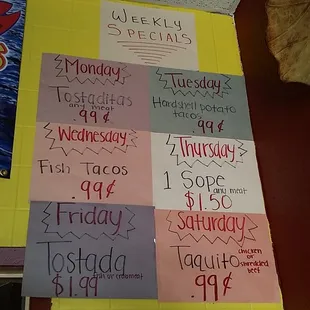 Weekly
Specials
Monday
Tostaditas
any meat
.99¢
Tuesday
Hardshell potato
tacos
.99¢
Wednesday
Fish Tacos
.99¢
Thursday
1 Sope
any meat
$1.50
Friday
Tostada
$1.99
Saturday
Taquito
chicken
or
shredded
beef
.99¢